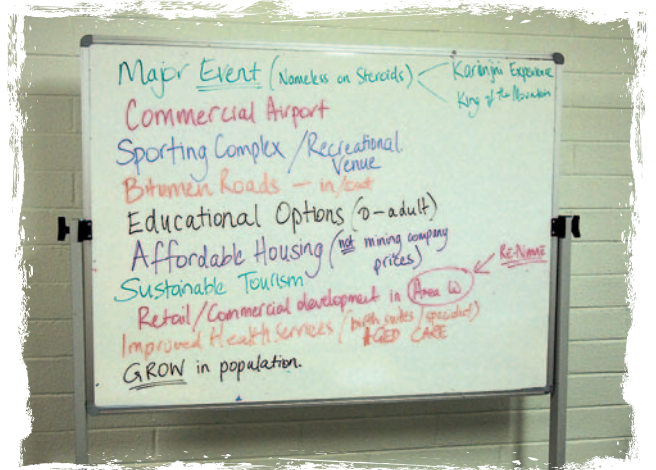 Major Event (Nameless on Steroids) Karijini Experience
King of the Mountain
Commercial Airport
Sporting Complex / Recreational
Venue
Bitumen Roads — in/out
Educational Options (0-adult)
Affordable Housing (not mining company
prices)
RE-Name
Sustainable Tourism
Retail/Commercial development in Area W
Improved Health Services (birth suites / specialist)
AGED CARE
GROW in population.